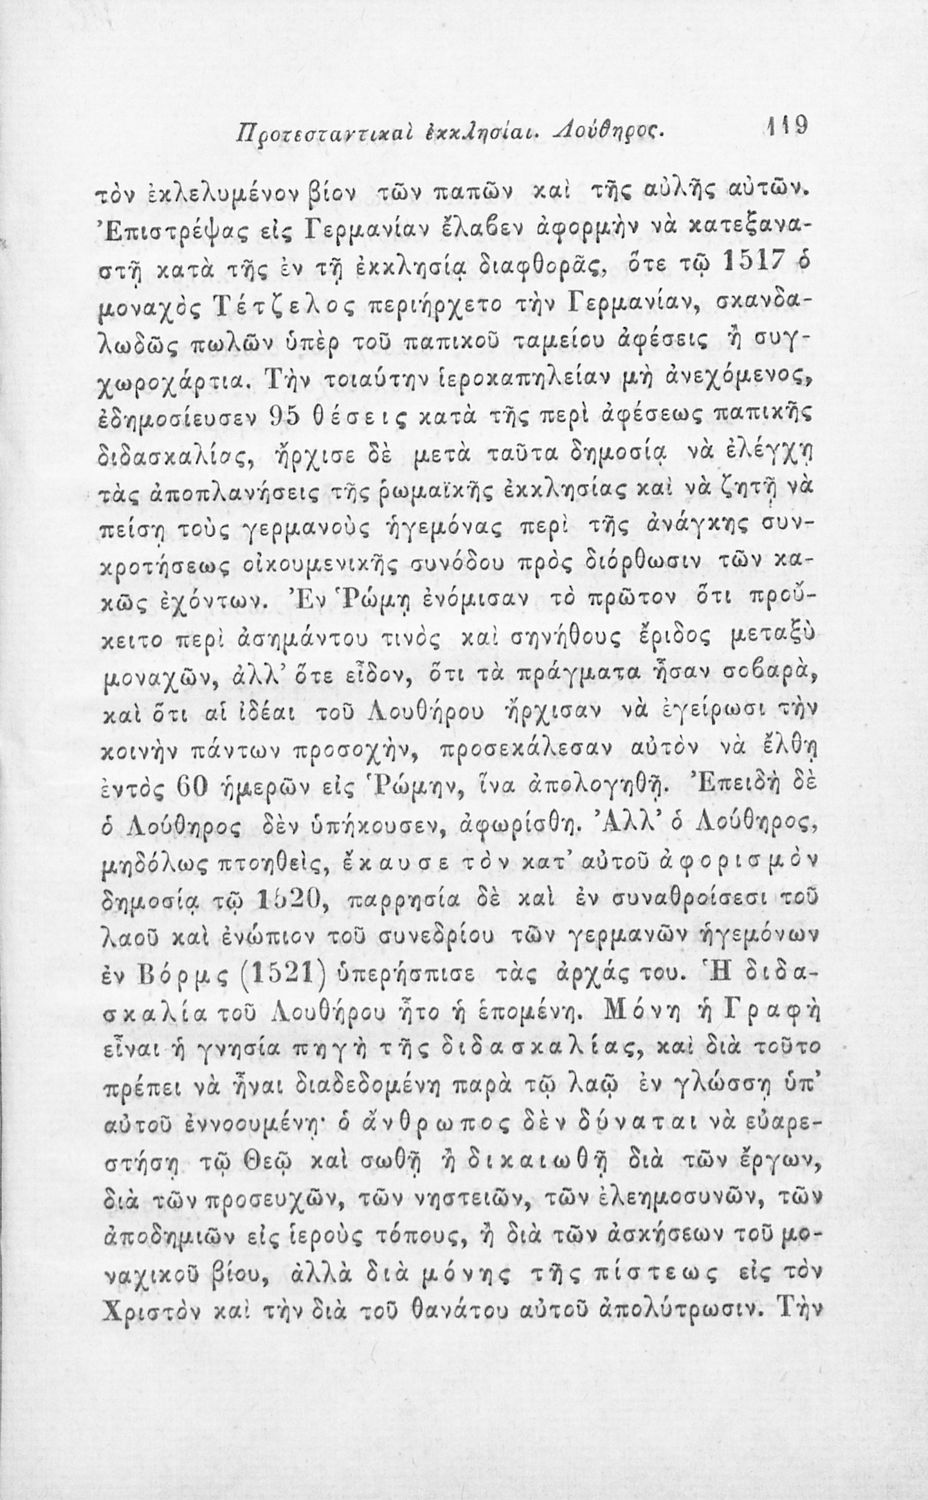 Προτεσταντικαὶ ἐκκλησίαι. Λούθηρος. 119
τὸν ἐκλελυμένον βίον τῶν παπῶν καὶ τῆς αὐλῆς αὐτῶν.
Ἐπιστρέψας εἰς Γερμανίαν ἔλαβεν ἀφορμὴν νὰ κατεξανα-
στῇ κατὰ τῆς ἐν τῇ ἐκκλησίᾳ διαφθορᾶς, ὅτε τῷ 1517 ὁ
μοναχὸς Τέτζελος περιήρχετο τὴν Γερμανίαν, σκανδα-
λωδῶς πωλῶν ὑπὲρ τοῦ παπικοῦ ταμείου ἀφέσεις ἢ συγ-
χωροχάρτια. Τὴν τοιαύτην ἱεροκαπηλείαν μὴ ἀνεχόμενος,
ἐδημοσίευσεν 95 θέσεις κατὰ τῆς περὶ ἀφέσεως παπικῆς
διδασκαλίας, ἤρχισε δὲ μετὰ ταῦτα δημοσίᾳ νὰ ἐλέγχῃ
τὰς ἀποπλανήσεις τῆς ῥωμαϊκῆς ἐκκλησίας καὶ νὰ ζητῇ νὰ
πείσῃ τοὺς γερμανοὺς ἡγεμόνας περὶ τῆς ἀνάγκης συν-
κροτήσεως οἰκουμενικῆς συνόδου πρὸς διόρθωσιν τῶν κα-
κῶς ἐχόντων. Ἐν Ῥώμῃ ἐνόμισαν τὸ πρῶτον ὅτι προὔ-
κειτο περὶ ἀσημάντου τινὸς καὶ σηνήθους ἔριδος μεταξὺ
μοναχῶν, ἀλλ' ὅτε εἶδον, ὅτι τὰ πράγματα ἦσαν σοβαρὰ,
καὶ ὅτι αἱ ἰδέαι τοῦ Λουθήρου ἤρχισαν νὰ ἐγείρωσι τὴν
κοινὴν πάντων προσοχὴν, προσεκάλεσαν αὐτὸν νὰ ἔλθῃ
ἐντὸς 60 ἡμερῶν εἰς Ῥώμην, ἵνα ἀπολογηθῇ. Ἐπειδὴ δὲ
ὁ Λούθηρος δὲν ὑπήκουσεν, ἀφωρίσθη. Ἀλλ' ὁ Λούθηρος,
μηδόλως πτοηθεὶς, ἔκαυσε τὸν κατ' αὐτοῦ ἀφορισμὸν
δημοσίᾳ τῷ 1520, παρρησία δὲ καὶ ἐν συναθροίσεσι τοῦ
λαοῦ καὶ ἐνώπιον τοῦ συνεδρίου τῶν γερμανῶν ἡγεμόνων
ἐν Βόρμς (1521) ὑπερήσπισε τὰς ἀρχάς του. Ἡ διδα-
σκαλία τοῦ Λουθήρου ἦτο ἡ ἑπομένη. Μόνη ἡ Γραφὴ
εἶναι ἡ γνησία πηγὴ τῆς διδασκαλίας, καὶ διὰ τοῦτο
πρέπει νὰ ἦναι διαδεδομένη παρὰ τῷ λαῷ ἐν γλώσσῃ ὑπ'
αὐτοῦ ἐννοουμένῃ· ὁ ἄνθρωπος δὲν δύναται νὰ εὐαρε-
στήσῃ τῷ Θεῷ καὶ σωθῇ ἢ δικαιωθῇ διὰ τῶν ἔργων,
διὰ τῶν προσευχῶν, τῶν νηστειῶν, τῶν ἐλεημοσυνῶν, τῶν
ἀποδημιῶν εἰς ἱεροὺς τόπους, ἢ διὰ τῶν ἀσκήσεων τοῦ μο-
ναχικοῦ βίου, ἀλλὰ διὰ μόνης τῆς πίστεως εἰς τὸν
Χριστὸν καὶ τὴν διὰ τοῦ θανάτου αὐτοῦ ἀπολύτρωσιν. Τὴν